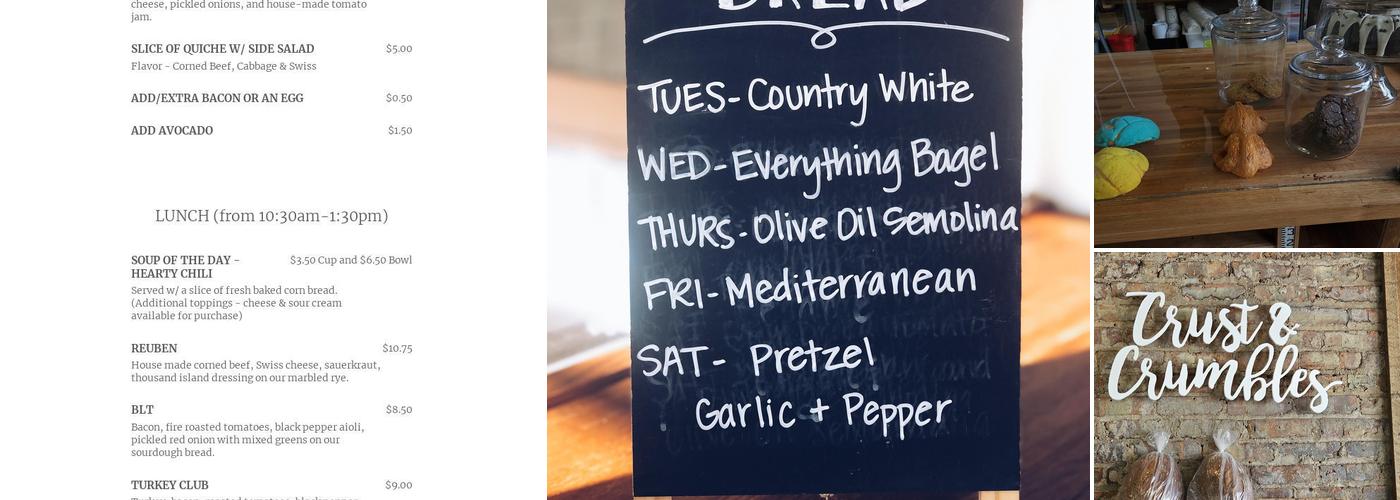 cheese, pickled onions, and house-made tomato
jam.
SLICE OF QUICHE W/ SIDE SALAD $5.00
Flavor - Corned Beef, Cabbage & Swiss
ADD/EXTRA BACON OR AN EGG $0.50
ADD AVOCADO $1.50
LUNCH (from 10:30am-1:30pm)
SOUP OF THE DAY - $3.50 Cup and $6.50 Bowl
HEARTY CHILI
Served w/ a slice of fresh baked corn bread.
(Additional toppings - cheese & sour cream
available for purchase)
REUBEN $10.75
House made corned beef, Swiss cheese, sauerkraut,
thousand island dressing on our marbled rye.
BLT $8.50
Bacon, fire roasted tomatoes, black pepper aioli,
pickled red onion with mixed greens on our
sourdough bread.
TURKEY CLUB $9.00
BREAD
TUES- Country White
WED- Everything Bagel
THURS- Olive Oil Semolina
FRI- Mediterranean
SAT- Pretzel
Garlic + Pepper
Crust &
Crumbles